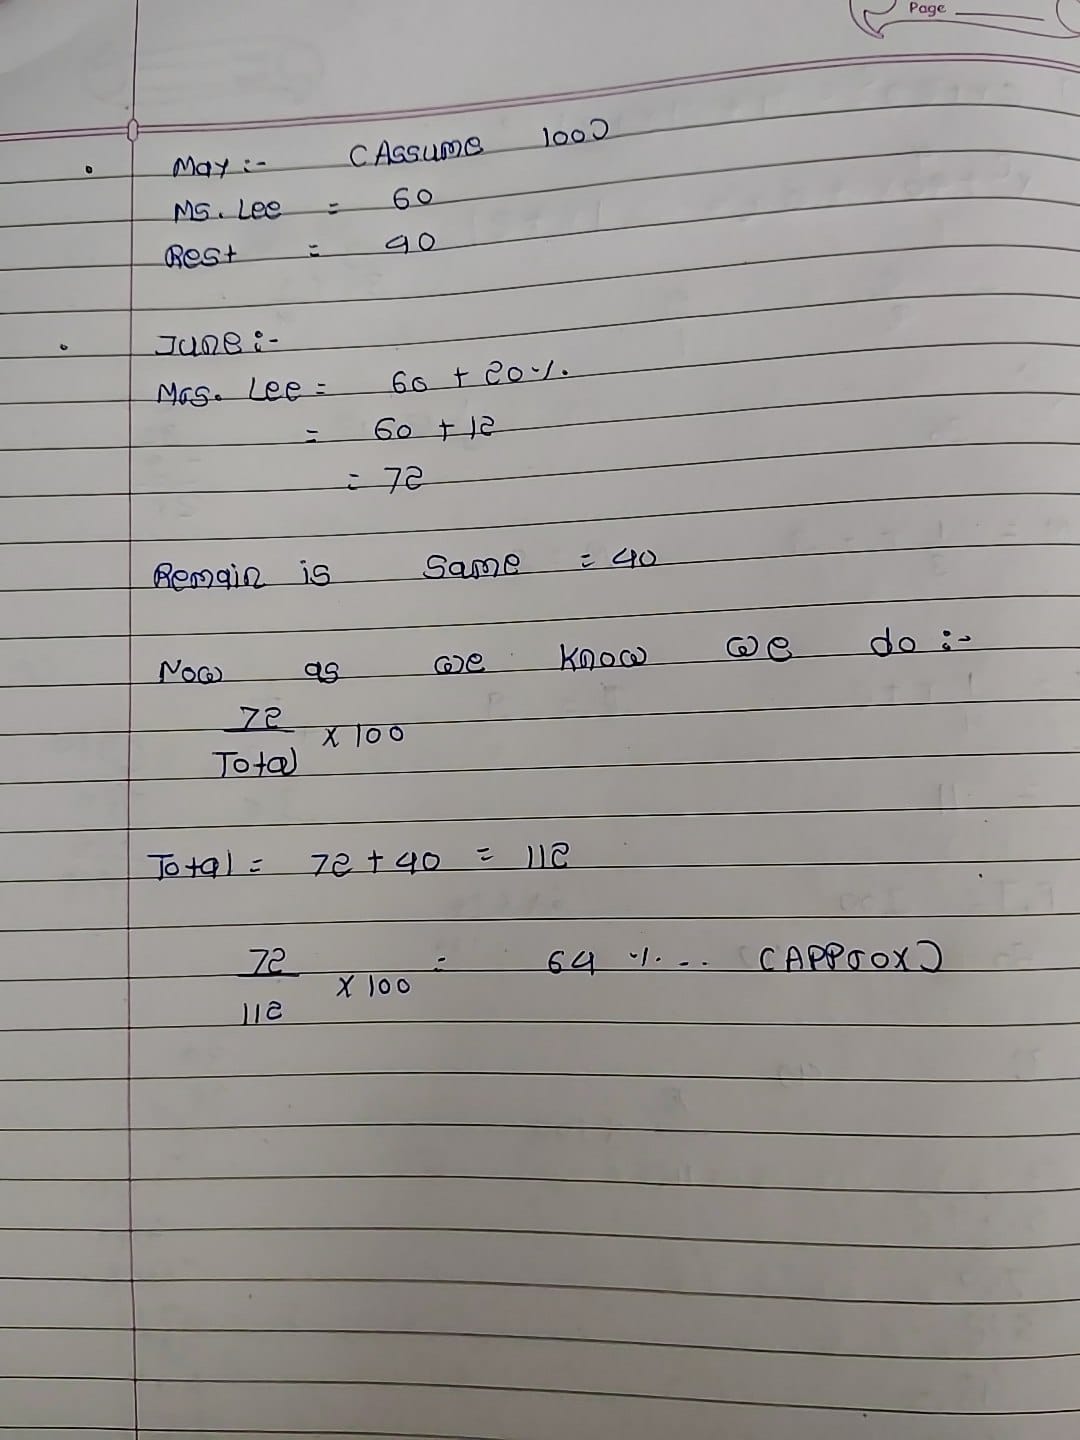 Page
May :- (Assume 100)
Ms. Lee = 60
Rest = 40
June :-
Mrs. Lee = 60 + 20%.
= 60 + 12
= 72
Remain is same = 40
Now as we know we do :-
72
Total × 100
Total = 72 + 40 = 112
72
112 × 100 = 64 %... (Approx)